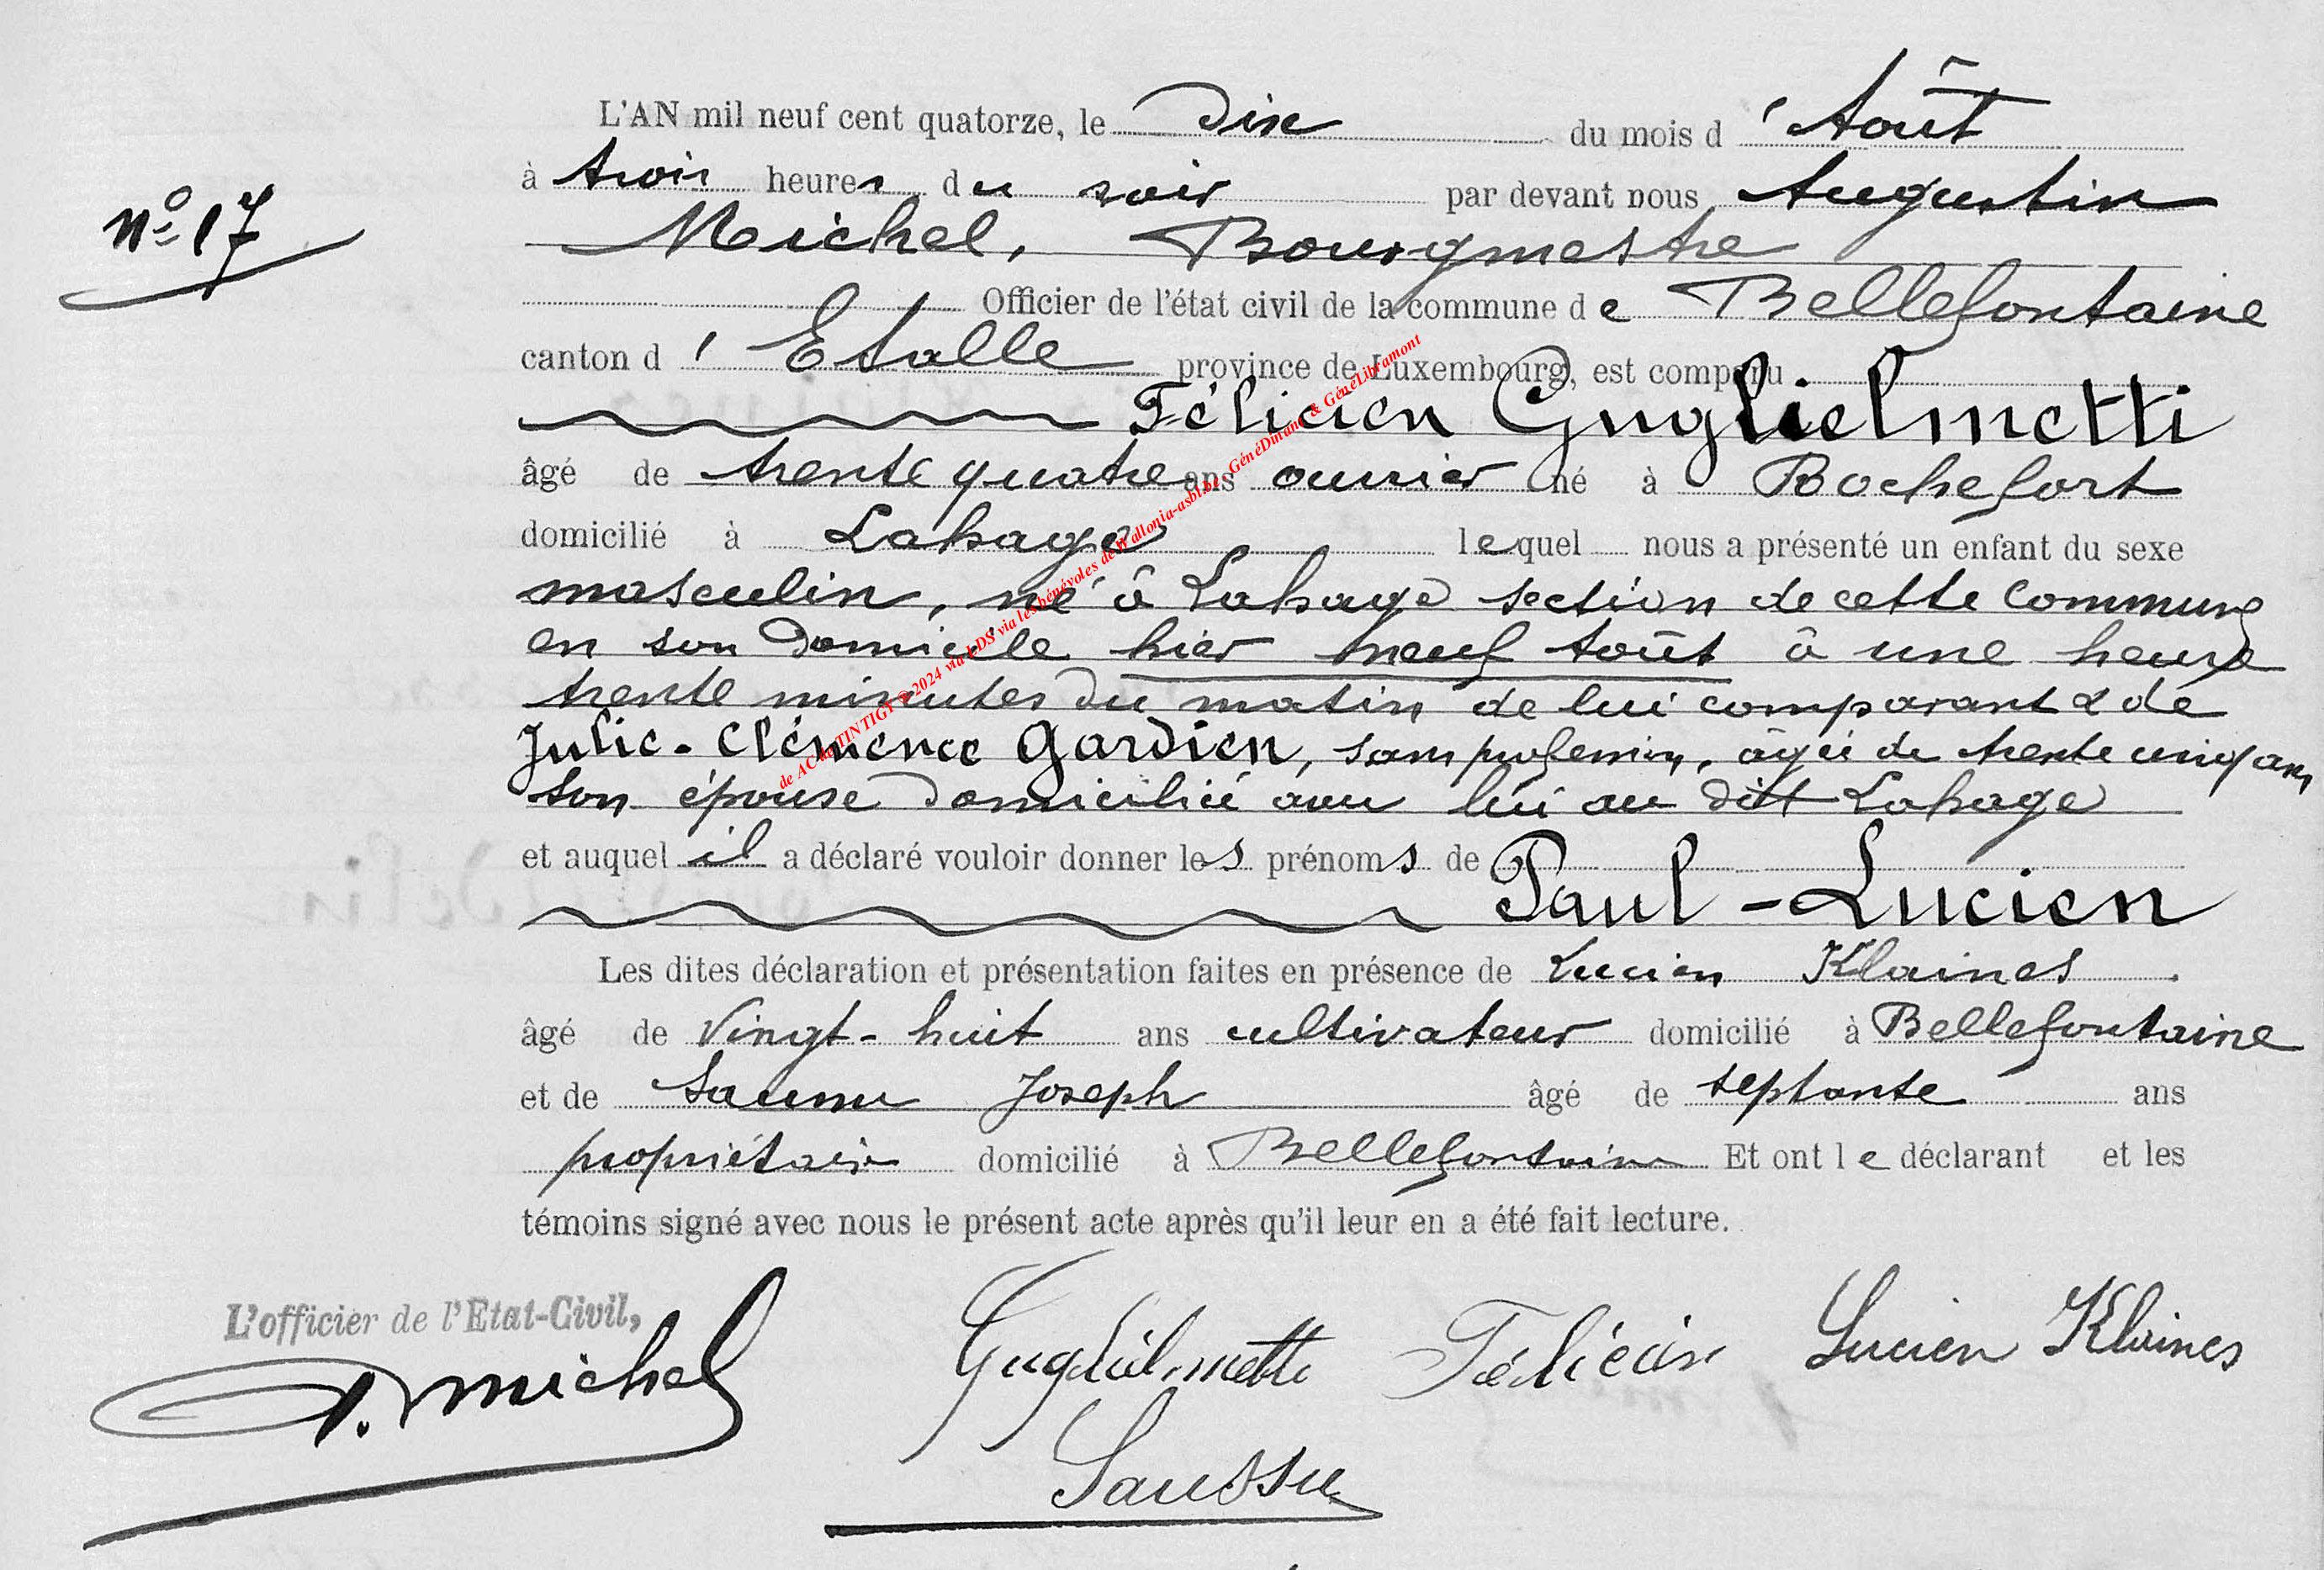 L'AN mil neuf cent quatorze, le dix du mois d'Août
à trois heures du soir par devant nous Augustin
N° 17
Michel, Bourgmestre
Officier de l'état civil de la commune de Bellefontaine
canton d'Etalle province de Luxembourg, est comparu
Félicien Guglielmetti
âgé de trente quatre ans ouvrier né à Rochefort
domicilié à Lahage lequel nous a présenté un enfant du sexe
masculin, né à Lahage section de cette commune
en son domicile hier neuf Août à une heure
trente minutes du matin de lui comparant & de
Julie-Clémence Gardien, sans profession, âgée de trente cinq ans
son épouse domiciliée avec lui au dit Lahage
et auquel il a déclaré vouloir donner les prénoms de
Paul-Lucien
Les dites déclaration et présentation faites en présence de Lucien Klaines
âgé de Vingt-huit ans cultivateur domicilié à Bellefontaine
et de Saussu Joseph âgé de septante ans
propriétaire domicilié à Bellefontaine Et ont le déclarant et les
témoins signé avec nous le présent acte après qu'il leur en a été fait lecture.
L'officier de l'Etat-Civil,
A. Michel
Guglielmetti Félicien
Lucien Klaines
Saussu
de AC de TINTIGNY © 2024 via LDS via les bénévoles de Wallonia-asbl.be, GénéDinant & GénéLibramont